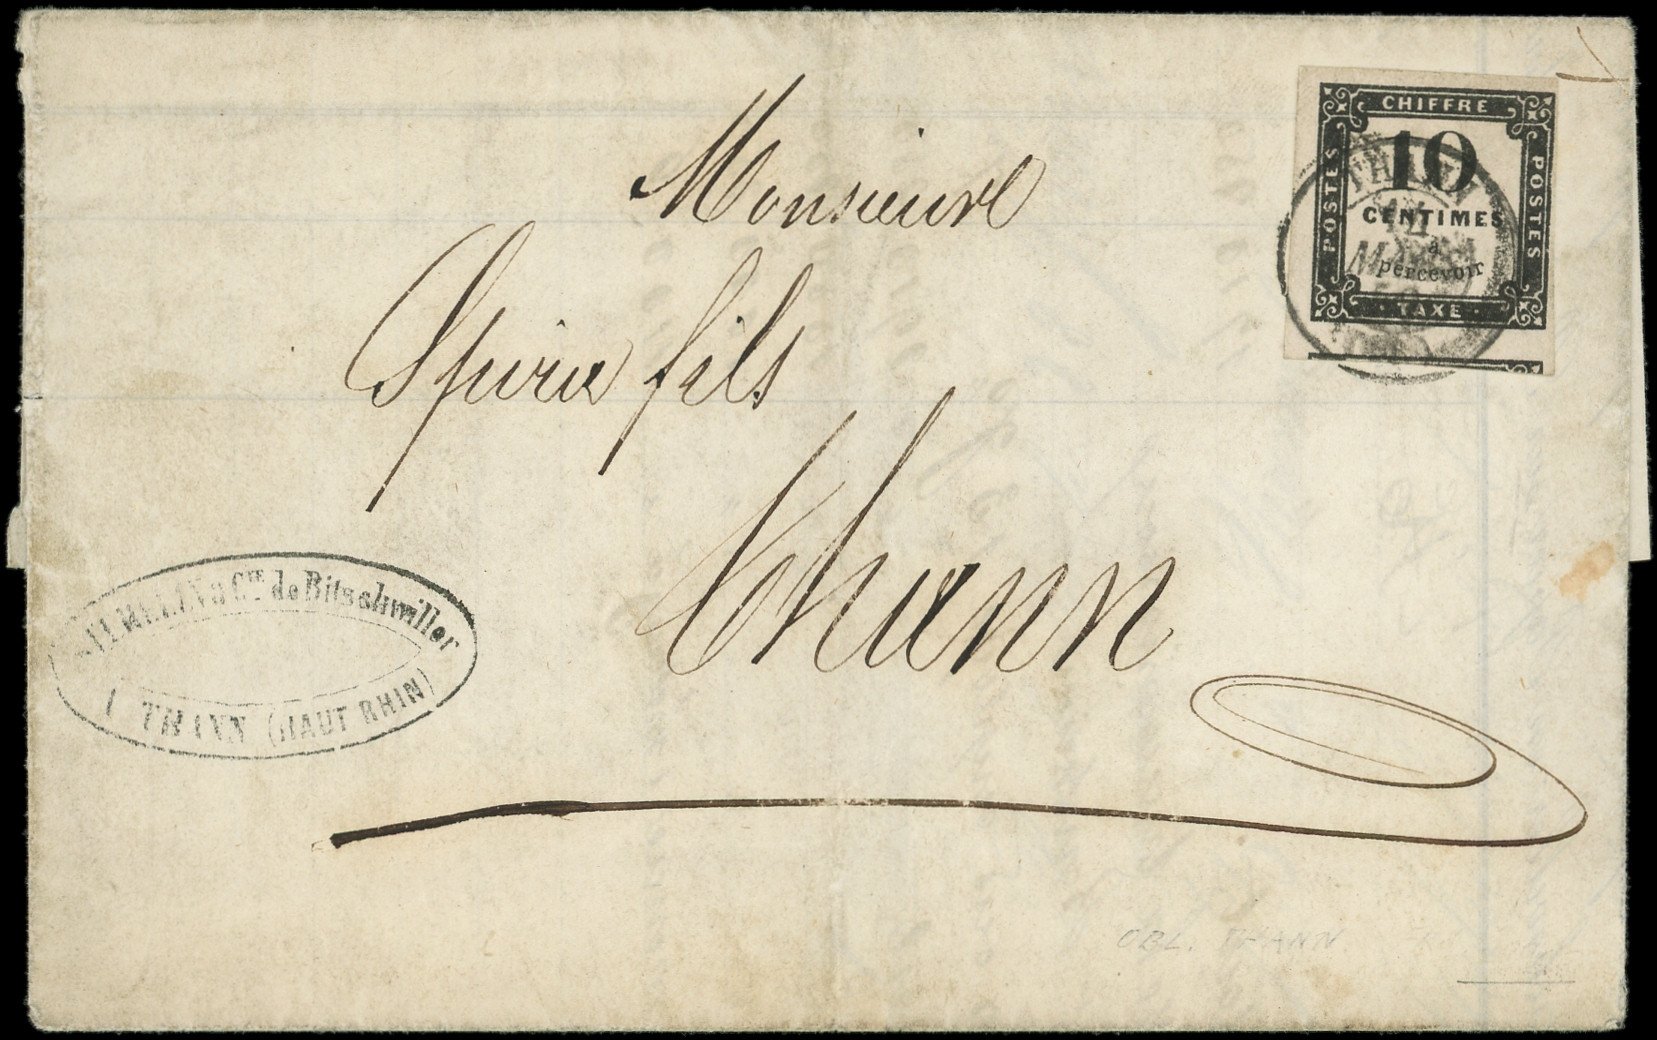 CHIFFRE
POSTES
10
CENTIMES
à
percevoir
POSTES
TAXE
THANN
Monsieur
Spira fils
Thann
Cie de Bitschwiller
THANN (HAUT RHIN)
OBL. THANN